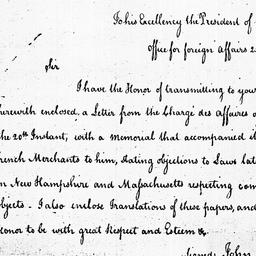 To his Excellency the President of
Office for foreign Affairs 2
Sir
I have the Honor of transmitting to your
herewith enclosed, a Letter from the Chargé des affaires o
the 20th Instant, with a memorial that accompanied it
rench Merchants to him, stating objections to Laws late
n New Hampshire and Massachusetts respecting com
bjects - I also enclose Translations of these papers, and
onor to be with great Respect and Esteem &c.
Signed John